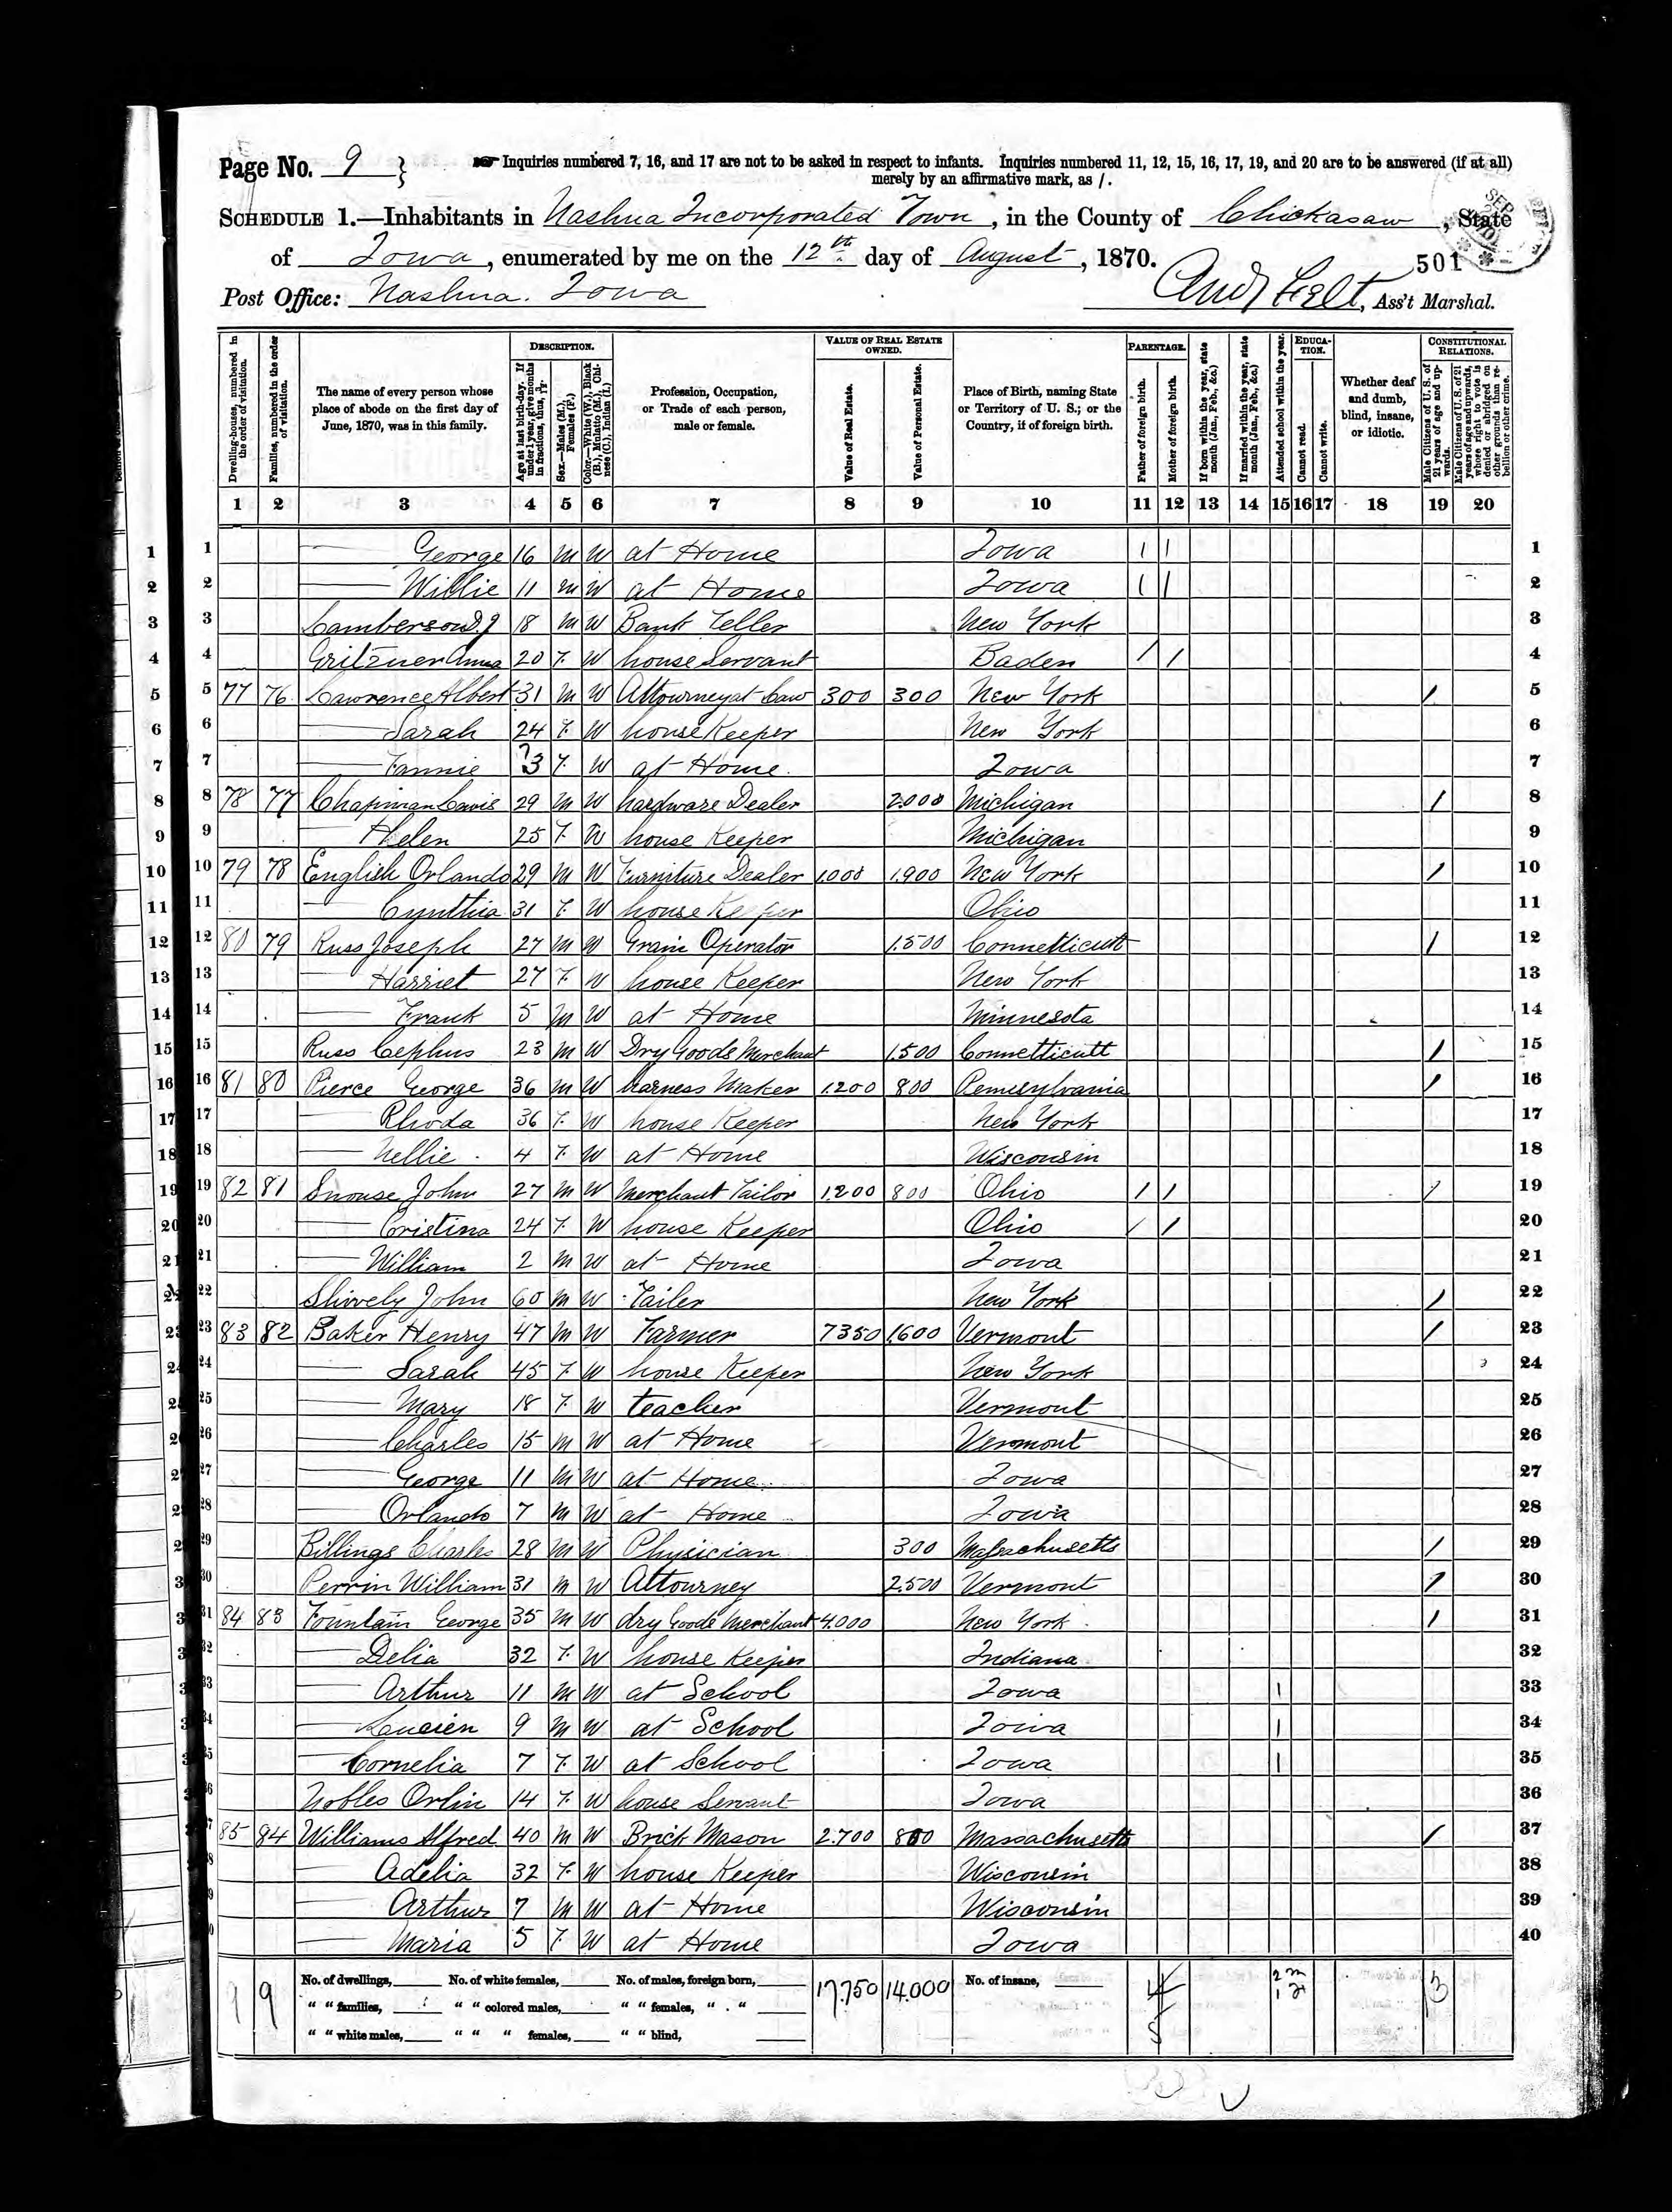 Page No. 9 } Inquiries numbered 7, 16, and 17 are not to be asked in respect to infants. Inquiries numbered 11, 12, 15, 16, 17, 19, and 20 are to be answered (if at all)
merely by an affirmative mark, as /.
SCHEDULE 1.—Inhabitants in Nashua Incorporated Town, in the County of Chickasaw, State
of Iowa, enumerated by me on the 12th day of August, 1870.
501
Post Office: Nashua. Iowa
Andy Felt, Ass't Marshal.
Dwelling-houses, numbered in the order of visitation.
Families, numbered in the order of visitation.
The name of every person whose place of abode on the first day of June, 1870, was in this family.
DESCRIPTION.
Age at last birth-day. If under 1 year, give months in fractions, thus,
Sex.—Males (M.), Females (F.)
Color.—White (W.), Black (B.), Mulatto (M.), Chinese (C.), Indian (I.)
Profession, Occupation, or Trade of each person, male or female.
VALUE OF REAL ESTATE OWNED.
Value of Real Estate.
Value of Personal Estate.
Place of Birth, naming State or Territory of U. S.; or the Country, if of foreign birth.
PARENTAGE.
Father of foreign birth.
Mother of foreign birth.
If born within the year, state month (Jan., Feb., &c.)
If married within the year, state month (Jan., Feb., &c.)
Attended school within the year.
EDUCATION.
Cannot read.
Cannot write.
Whether deaf and dumb, blind, insane, or idiotic.
CONSTITUTIONAL RELATIONS.
Male Citizens of U. S. of 21 years of age and upwards.
Male Citizens of U. S. of 21 years of age and upwards, whose right to vote is denied or abridged on other grounds than rebellion or other crime.
1 2 3 4 5 6 7 8 9 10 11 12 13 14 15 16 17 18 19 20
1 George 16 M W at Home Iowa / / 1
2 Willie 11 M W at Home Iowa / / 2
3 Lamberson D. J 18 M W Bank Teller New York 3
4 Gritzner Anna 20 F. W house Servant Baden / / 4
5 77 76 Lawrence Albert 31 M W Attourney at Law 300 300 New York / 5
6 Sarah 24 F. W house Keeper New York 6
7 Fannie 3 F. W at Home Iowa 7
8 78 77 Chapman Lavis 29 M W hardware Dealer 2.000 Michigan / 8
9 Helen 25 F. W house Keeper Michigan 9
10 79 78 English Orlando 29 M W Furniture Dealer 1.000 1.900 New York / 10
11 Cynthia 31 F. W house Keeper Ohio 11
12 80 79 Russ Joseph 27 M W Grain Operator 1.500 Connetticutt / 12
13 Harriet 27 F. W house Keeper New York 13
14 Frank 5 M W at Home Minnesota 14
15 Russ Cephus 23 M W Dry Goods Merchant 1.500 Connetticutt / 15
16 81 80 Pierce George 36 M W harness Maker 1.200 800 Pennsylvania / 16
17 Rhoda 36 F. W house Keeper New York 17
18 Nellie 4 F. W at Home Wisconsin 18
19 82 81 Snouse John 27 M W Merchant Tailor 1.200 800 Ohio / / / 19
20 Cristina 24 F. W house Keeper Ohio / / 20
21 William 2 M W at Home Iowa 21
22 Shively John 60 M W Tailer New York / 22
23 83 82 Baker Henry 47 M W Farmer 7350 1.600 Vermont / 23
24 Sarah 45 F W house Keeper New York 24
25 Mary 18 F. W teacher Vermont 25
26 Charles 15 M W at Home Vermont 26
27 George 11 M W at Home Iowa 27
28 Orlando 7 M W at Home Iowa 28
29 Billings Charles 28 M W Physician 300 Massachusetts / 29
30 Perrin William 31 M W Attourney 2.500 Vermont / 30
31 84 83 Fountain George 35 M W dry Goods Merchant 4.000 New York / 31
32 Delia 32 F. W house Keeper Indiana 32
33 Arthur 11 M W at School Iowa / 33
34 Lucien 9 M W at School Iowa / 34
35 Cornelia 7 F. W at School Iowa / 35
36 Nobles Orlin 14 F. W house Servant Iowa 36
37 85 84 Williams Alfred 40 M W Brick Mason 2.700 800 Massachusetts / 37
38 Adelia 32 F. W house Keeper Wisconsin 38
39 Arthur 7 M W at Home Wisconsin 39
40 Maria 5 F. W at Home Iowa 40
9 9 No. of dwellings, No. of white females, No. of males, foreign born, 17.750 14.000 No. of insane, 4 2 m 13
" " families, " " colored males, " " females, " " 1 F
" " white males, " " " females, " " blind, 5